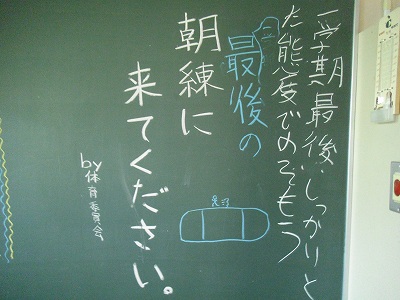 一学期最後、しっかりと
た態度でのぞもう
最後の
朝練に
来てください。
by体育委員会